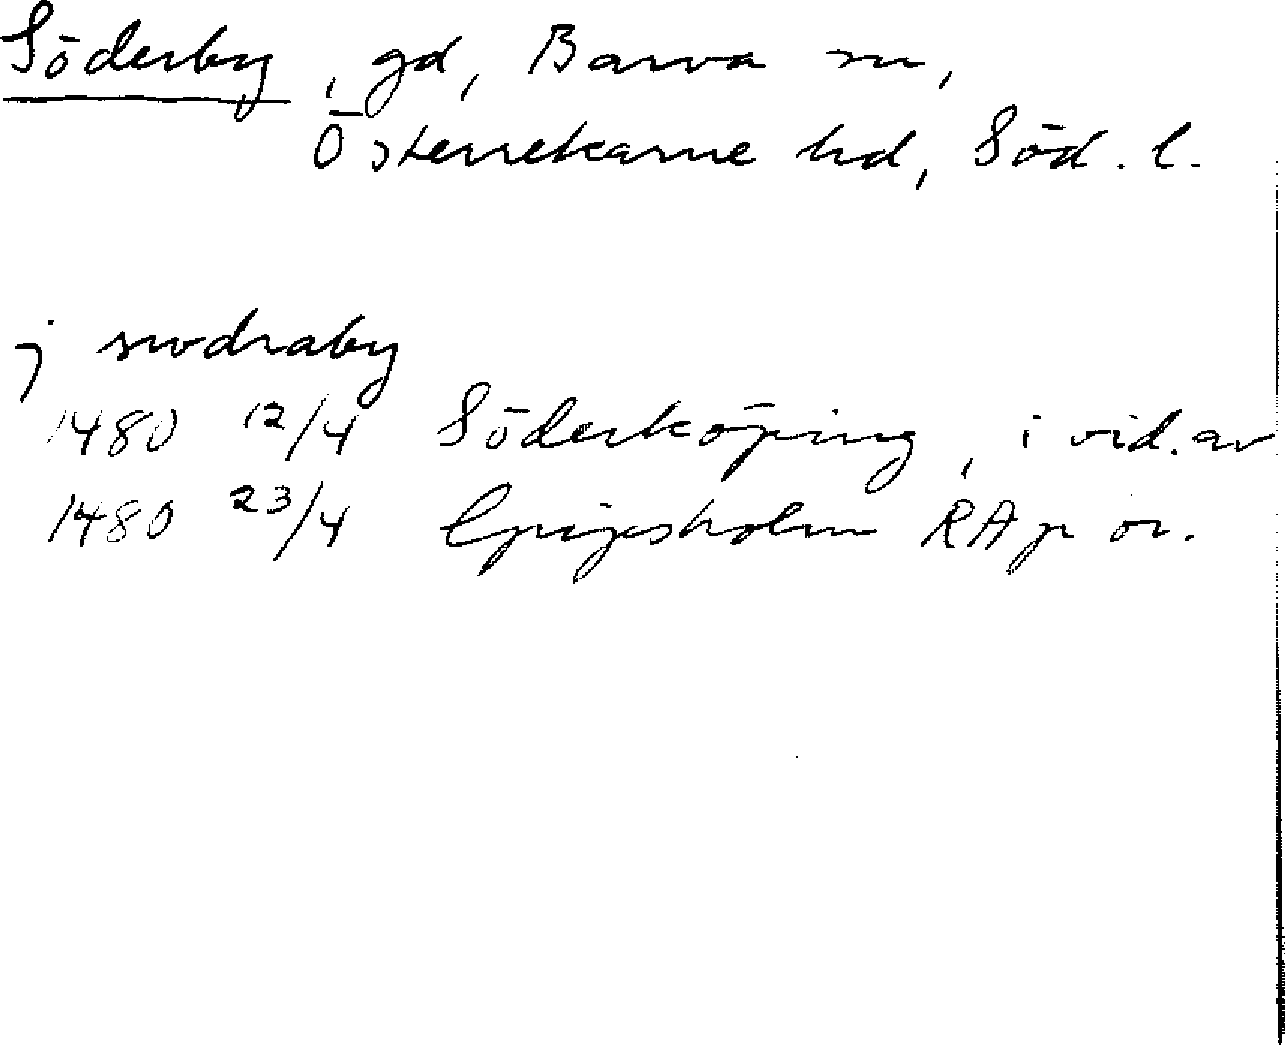 Söderby, gd, Barva sn,
Österrekarne hd, Söd. l.
j swdraby
1480 12/4 Söderköping, i vid. av
1480 23/4 Gripsholm RAp or.